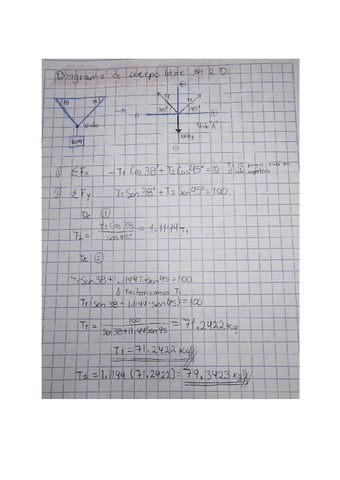 Diagrama de cuerpo libre en 2D
38° 45°
Nodo
100kg
T1 T2
38° 45°
Nodo A
100kg
① ΣFx - T1 Cos 38° + T2 Cos 45° = 0
② ΣFy T1 Sen 38° + T2 Sen 45° = 100
De ①
T2 = T1 Cos 38 / cos 45° = 1.1144 T1
De ②
T1 Sen 38 + 1.1144T1 sen 45 = 100
↓ Factorizamos T1
T1 (Sen 38 + 1.1144 sen 45) = 100
T1 = 100 / Sen 38 + 1.1144 Sen 45 = 71.2422 kg
T1 = 71.2422 kg
T2 = 1.1144 (71.2422) = 79.3923 kg